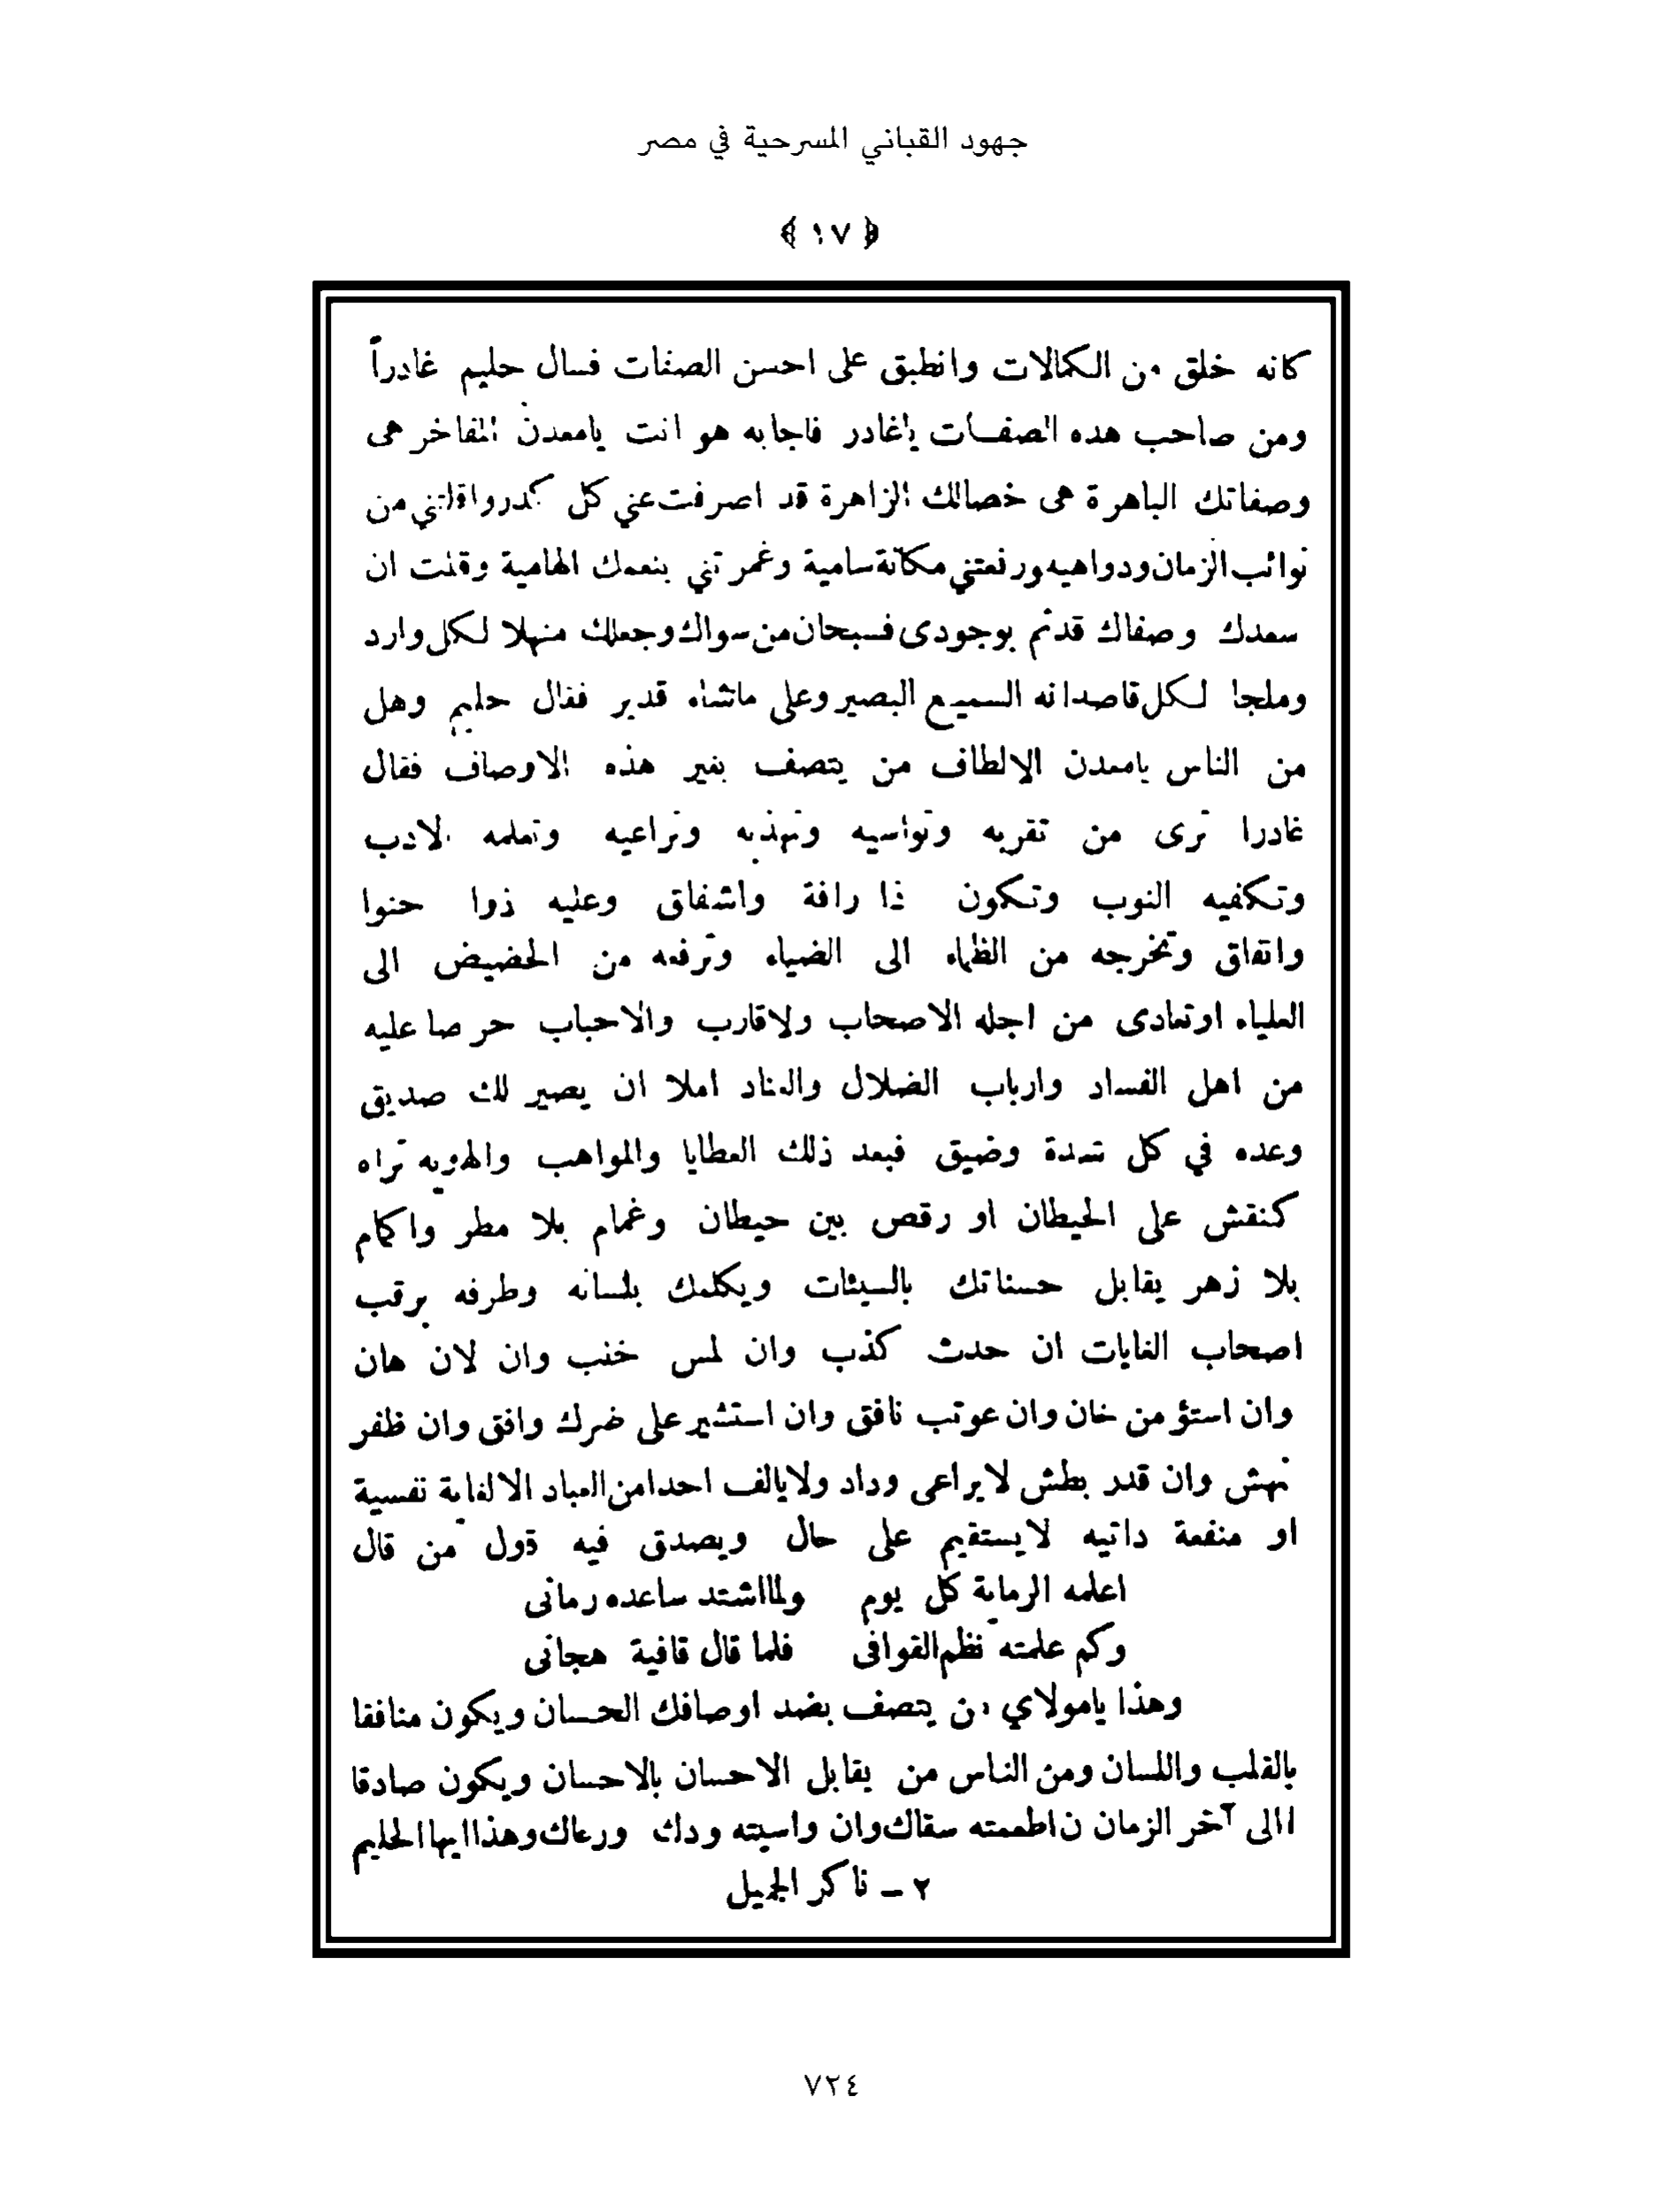 جهود القباني المسرحية في مصر
﴿ ١٧ ﴾
كانه خلق من الكمالات وانطبق على احسن الصفات فسال حليم غادراً
ومن صاحب هده الصفات ياغادر فاجابه هو انت يامعدن المفاخر هى
وصفاتك الباهرة هى خصالك الزاهرة قد اصرفت عني كل كدر واقلتني من
نوائب الزمان ودواهيه ورفعتني مكانة سامية وغمرتني بنعمك الهامية وقلت ان
سعدك وصفاك قد تم بوجودى فسبحان من سواك وجعلك منهلا لكل وارد
وملجا لكل قاصد انه السميع البصير وعلى ماشاء قدير فقال حليم وهل
من الناس يامعدن الالطاف من يتصف بغير هذه الاوصاف فقال
غادرا ترى من تقربه وتواسيه وتهذبه وتراعيه وتعلمه الادب
وتكفيه النوب وتكون ذا رافة واشفاق وعليه ذوا حنوا
واتفاق وتخرجه من الظلماء الى الضياء وترفعه من الحضيض الى
العلياء اوتعادى من اجله الاصحاب ولاقارب والاحباب حرصا عليه
من اهل الفساد وارباب الضلال والعناد املا ان يصير لك صديق
وعده في كل شدة وضيق فبعد ذلك العطايا والمواهب والهويه تراه
كنقش على الحيطان او رقص بين حيطان وغمام بلا مطر واكمام
بلا زهر يقابل حسناتك بالسيئات ويكلمك بلسانه وطرفه يرقب
اصحاب الغايات ان حدث كذب وان لمس خنب وان لان هان
وان استؤمن خان وان عوتب نافق وان استشير على ضرك وافق وان ظفر
نهش وان قدر بطش لايراعى وداد ولايالف احدا من العباد الا لغاية نفسية
او منفعة داتيه لايستقيم على حال ويصدق فيه قول من قال
اعلمه الرماية كل يوم ولمااشتد ساعده رمانى
وكم علمته نظم القوافى فلما قال قافية هجانى
وهذا يامولاي من يتصف بضد اوصافك الحسان ويكون منافقا
بالقلب واللسان ومن الناس من يقابل الاحسان بالاحسان ويكون صادقا
االى آخر الزمان ن اطعمته سقاك وان واسيته ودك ورعاك وهذا ايها الحليم
٢ – ناكر الجميل
٧٢٤